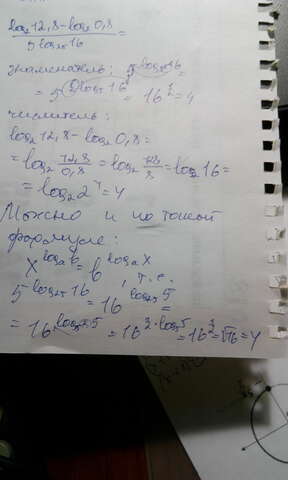 log₂ 12,8 - log₂ 0,8
5 log₂₅ 16 =
знаменатель: 5^log₂₅16 =
= 16^½ = 4
числитель:
log₂ 12,8 - log₂ 0,8 =
= log₂ 12,8/0,8 = log₂ 128/8 = log₂ 16 =
= log₂ 2⁴ = 4
Можно и по такой
формуле:
x^logₐb = b^logₐx, т.е.
5^log₂₅16 = 16^log₂₅5 =
= √16 = 4